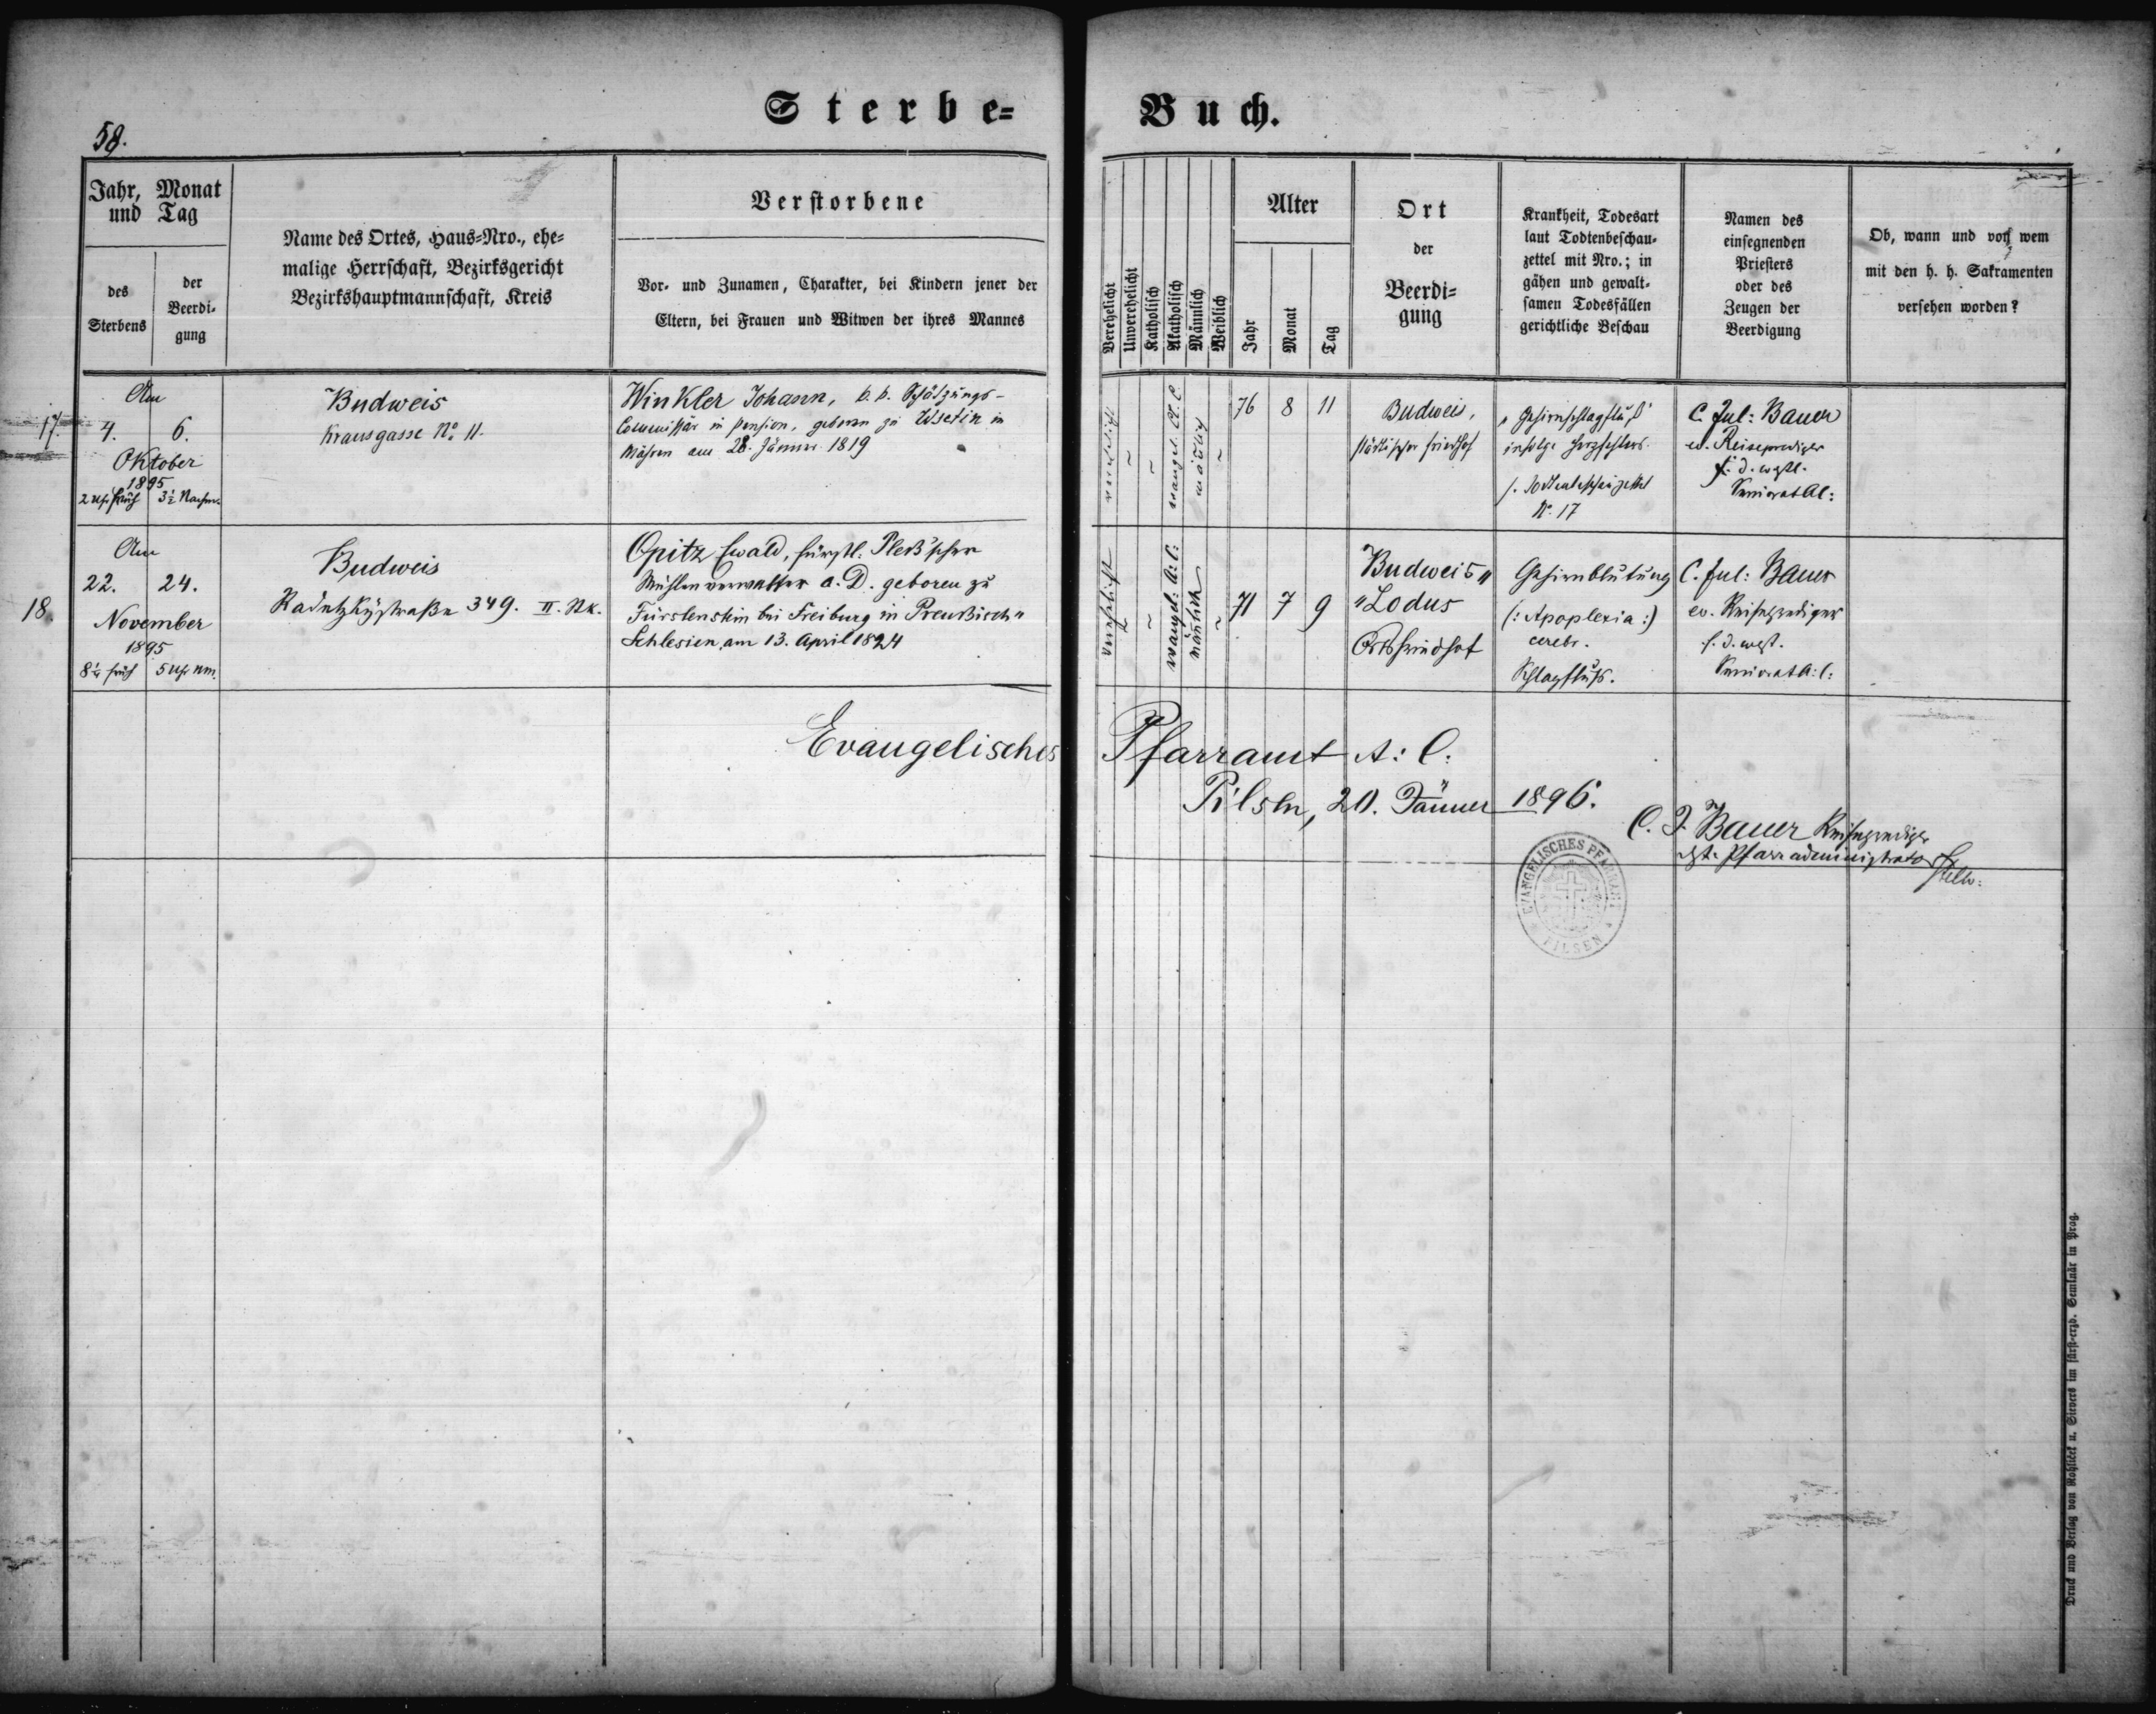 Sterbe=
Buch.
58.
Jahr, Monat
und Tag
des
Sterbens
der
Beerdi-
gung
Name des Ortes, Haus=Nro., ehe=
malige Herrschaft, Bezirksgericht
Bezirkshauptmannschaft, Kreis
Verstorbene
Vor- und Zunamen, Charakter, bei Kindern jener der
Eltern, bei Frauen und Witwen der ihres Mannes
Verehelicht
Unverehelicht
Katholisch
Akatholisch
Männlich
Weiblich
Alter
Jahr
Monat
Tag
Ort
der
Beerdi=
gung
Krankheit, Todesart
laut Todtenbeschau-
zettel mit Nro.; in
gähen und gewalt-
samen Todesfällen
gerichtliche Beschau
Namen des
einsegnenden
Priesters
oder des
Zeugen der
Beerdigung
Ob, wann und von wem
mit den h. h. Sakramenten
versehen worden?
17.
Am
4. 6.
Oktober
1895
2 Uhr früh 3½ Nachm.
Budweis
Krausgasse No. 11.
Winkler Johann, k. k. Schätzungs-
Commissär in Pension, geboren zu Wsetin in
Mähren am 28. Jänner 1819
verehelicht
~
~
evangel. A. C.
männlich
~
76 8 11
Budweis,
städtischer Friedhof
Gehirnschlagfluß
infolge Herzfehlers.
s. Todtenbeschauzettel
No. 17
C. Jul: Bauer
ev. Reiseprediger
f. d. westl.
Seniorat A C:
18.
Am
22. 24.
November
1895
8¼ früh 5 Uhr nm.
Budweis
Radetzkystraße 349. II. Stk.
Opitz Ewald, fürstl. Pleß'scher
Mühlenverwalter a. D. geboren zu
Fürstenstein bei Freiburg in Preußisch"
Schlesien, am 13. April 1824
verehelicht
~
evangel: A: C:
männlich
~
71 7 9
Budweis"
"Lodus
Ortsfriedhof
Gehirnblutung
(: Apoplexia :)
cerebr.
Schlagfluß.
C. Jul: Bauer
ev. Reiseprediger
f. d. westl.
Seniorat A: C:
Evangelisches Pfarramt A: C:
Pilsen, 20. Jänner 1896.
C. J. Bauer Reiseprediger
Pfarradministrator
Stellv:
EVANGELISCHES PFARRAMT
PILSEN
Druck und Verlag von Rohlicek u. Sievers im fürst-erzb. Seminär in Prag.